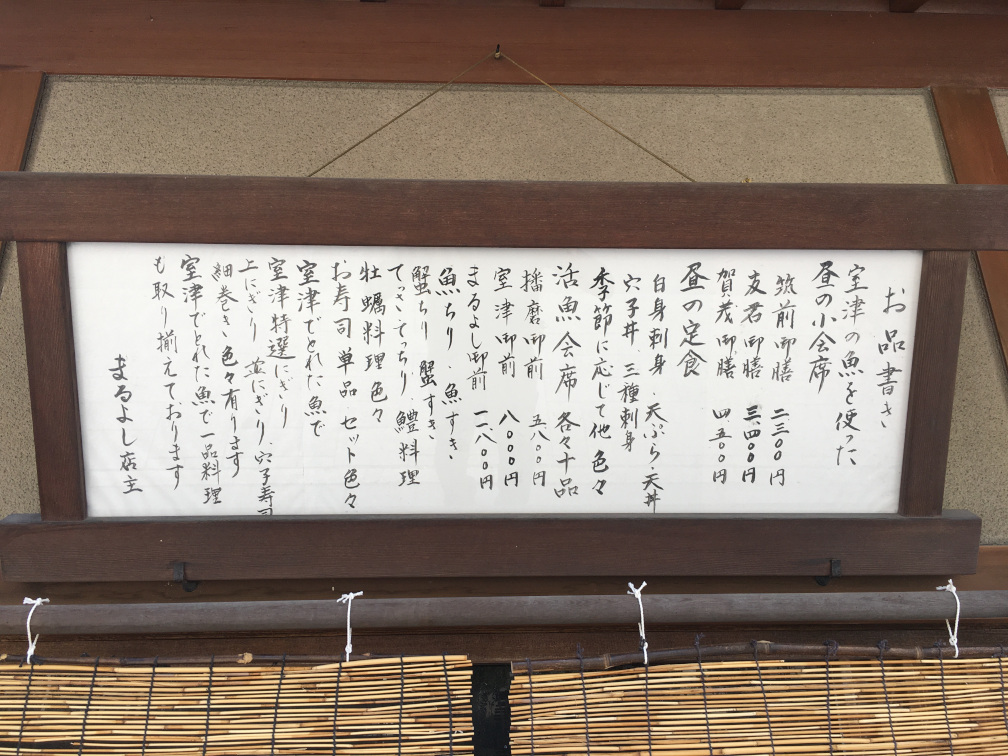 お品書き
室津の魚を使った
昼の小会席
筑前御膳 二三〇〇円
友君御膳 三、四〇〇円
賀茂御膳 四、五〇〇円
昼の定食
白身刺身・天ぷら・天丼
穴子丼・三種刺身
季節に応じて他色々
活魚会席 各々十品
播磨御前 五八〇〇円
室津御前 八〇〇〇円
まるよし御前 一二、八〇〇円
魚ちり・魚すき
蟹ちり 蟹すき
てっさ・てっちり・鱧料理
牡蠣料理色々
お寿司単品・セット色々
室津でとれた魚で
室津特選にぎり
上にぎり 並にぎり・穴子寿司
細巻き色々有ります
室津でとれた魚で一品料理
も取り揃えております
まるよし店主